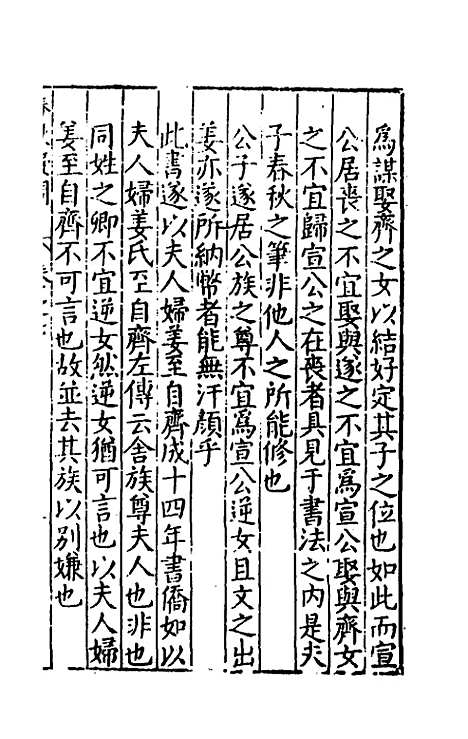 為謀娶齊之女以結好定其子之位也如此而宣
公居喪之不宜娶與遂之不宜為宣公娶與齊女
之不宜歸宣公之在喪者具見于書法之内是夫
子春秋之筆非他人之所能修也
公子遂居公族之尊不宜為宣公逆女且文之出
姜亦遂所納幣者能無汗顔乎
此書遂以夫人婦姜至自齊成十四年書僑如以
夫人婦姜氏至自齊左傳云舍族尊夫人也非也
同姓之卿不宜逆女然逆女猶可言也以夫人婦
姜至自齊不可言也故並去其族以别嫌也